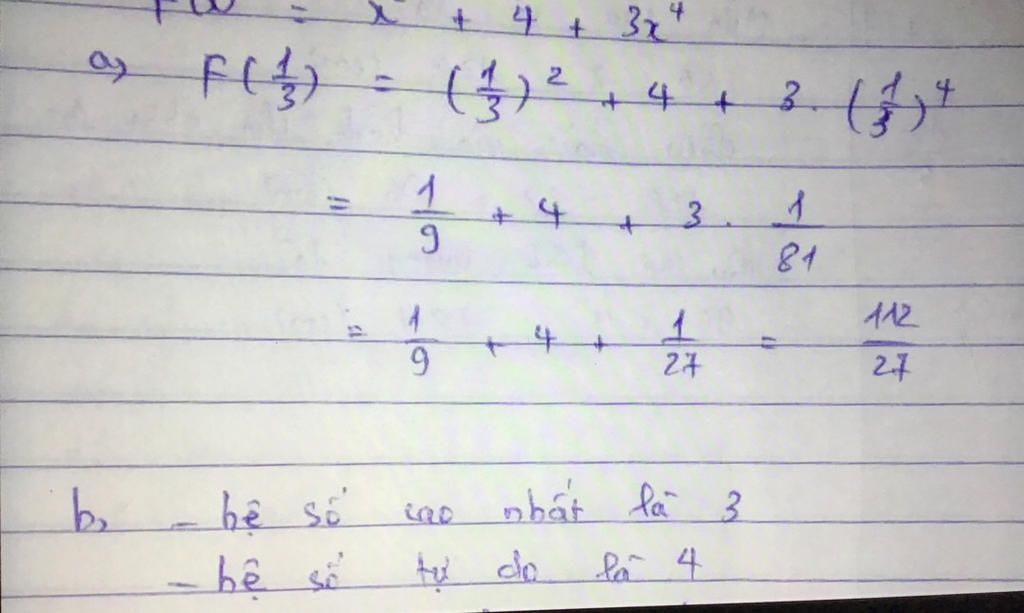 F(x) = x + 4 + 3x⁴
a) F(1/3) = (1/3)² + 4 + 3 . (1/3)⁴
= 1/9 + 4 + 3 . 1/81
= 1/9 + 4 + 1/27 = 112/27
b, - hệ số cao nhất là 3
- hệ số tự do là 4